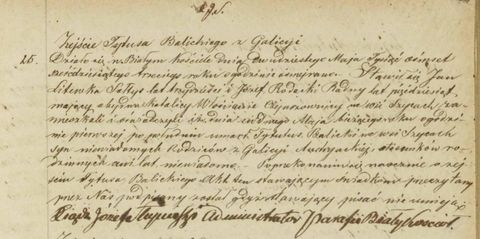 Zejście Tytusa Balickiego z Galicyi
Działo się w Białym Kościele dnia dwudziestego Maja Tysiąc ośmset
sześćdziesiątego trzeciego roku o godzinie ósmej rano. Stawili się Jan
Litewka Sołtys lat trzydzieści i Józef Rodacki Radny lat pięćdziesiąt
mający obydwa Katolicy Włościanie we wsi Szycach za-
mieszkali i oświadczyli iż dnia siódmego Maja bieżącego roku o godzi-
nie pierwszej po południu umarł Tytus Balicki we wsi Szycach
syn niewiadomych Rodziców z Galicyi Austryackiej stosunków ro-
dzinnych ani lat niewiadomo. Po przekonaniu się naocznie o zej-
ściu Tytusa Balickiego Akt ten stawającym świadkom przeczytany
przez Nas podpisany został gdyż stawający pisać nie umieją
Ksiądz Józef Administrator Parafii Białykościół
Zejście